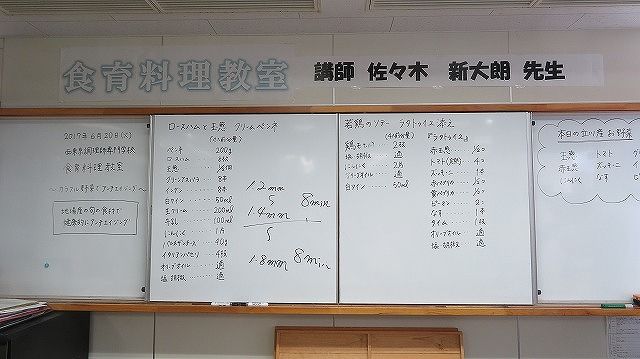 食育料理教室
講師 佐々木 新大朗 先生
2017年6月20日(火)
西東京調理師専門学校
食育料理教室
～カラフル野菜でアンチエイジング～
地場産の旬の食材で
健康的にアンチエイジング
ロースハムと玉葱 クリームペンネ
(4人前分量)
ペンネ 200g
ロースハム
玉葱 1/2個
グリーンアスパラ 8本
インゲン 8本
白ワイン 50ml
生クリーム 200ml
牛乳 100ml
にんにく 1片
パルメザンチーズ 40g
イタリアンパセリ 4枝
オリーブオイル 適
塩・胡椒 適
1.2mm
8min
1.4mm
1.8mm 8min
若鶏のソテー ラタトゥイユ添え
(4人前分量)
鶏モモ肉 2枚
塩・胡椒 適
にんにく 2片
オリーブオイル 適
白ワイン 50ml
『ラタトゥイユ』
赤玉葱 1/2ヶ
トマト(完熟) 4ヶ
ズッキーニ 1本
赤パプリカ
黄パプリカ
ピーマン 2ヶ
なす 1本
タイム 1枝
オリーブオイル 適
塩・胡椒 適
本日の立川産お野菜
玉葱 トマト
にんにく なす